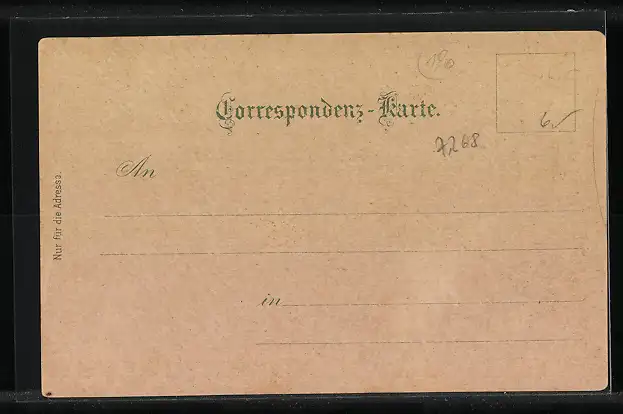 Correspondenz-Karte.
7268
An
Nur für die Adresse.
in